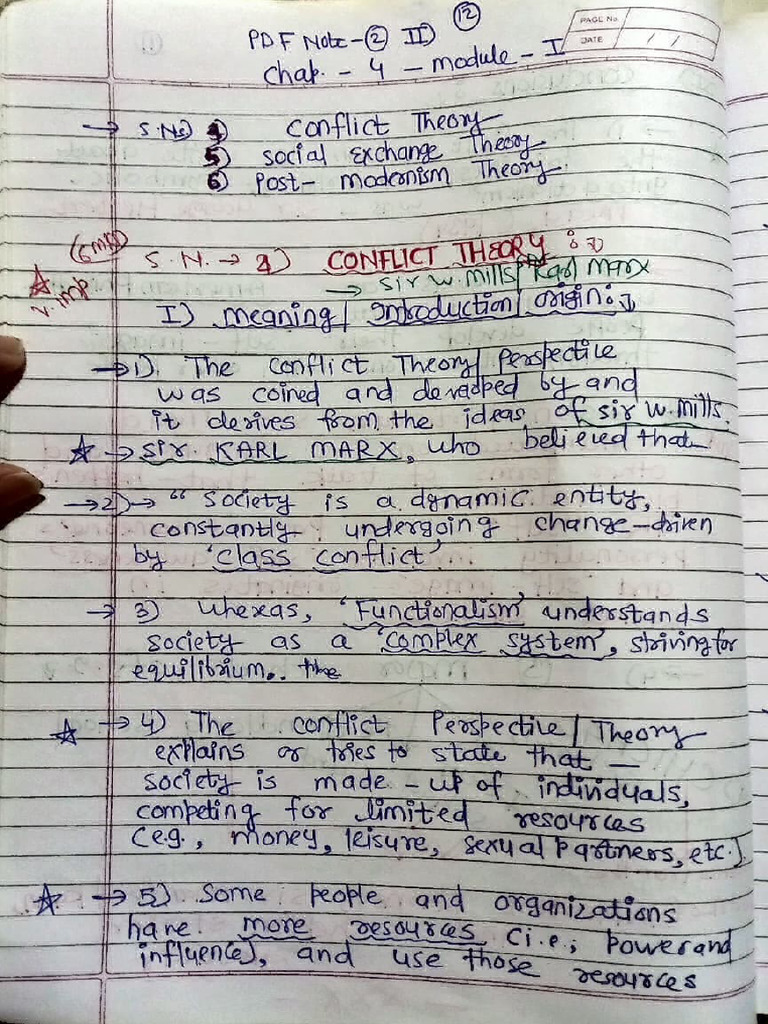 12
PAGE No.
DATE / /
PDF Note - 2 II)
Chap. - 4 - module - I
→ S.No) 4) Conflict Theory
5) Social Exchange Theory
6) Post - modernism Theory.
(6 mks)
S. N. → 4) CONFLICT THEORY :→
→ Sir W. Mills / Karl MARX
V. imp
I) meaning / Introduction / origin :→
→ 1). The Conflict Theory / perspective
was coined and developed by and
it derives from the ideas of Sir W. Mills.
→ Sir. KARL MARX, who believed that
→ 2) → " Society is a dynamic entity,
constantly undergoing change - driven
by 'Class Conflict'
→ 3) Whereas, 'Functionalism' understands
society as a 'Complex system', striving for
equilibrium.. the
→ 4) The Conflict Perspective / Theory
explains or tries to state that —
society is made - up of individuals,
competing for limited resources
(e.g., money, leisure, sexual partners, etc.).
→ 5) Some people and organizations
have more resources (i.e., power and
influence), and use those resources